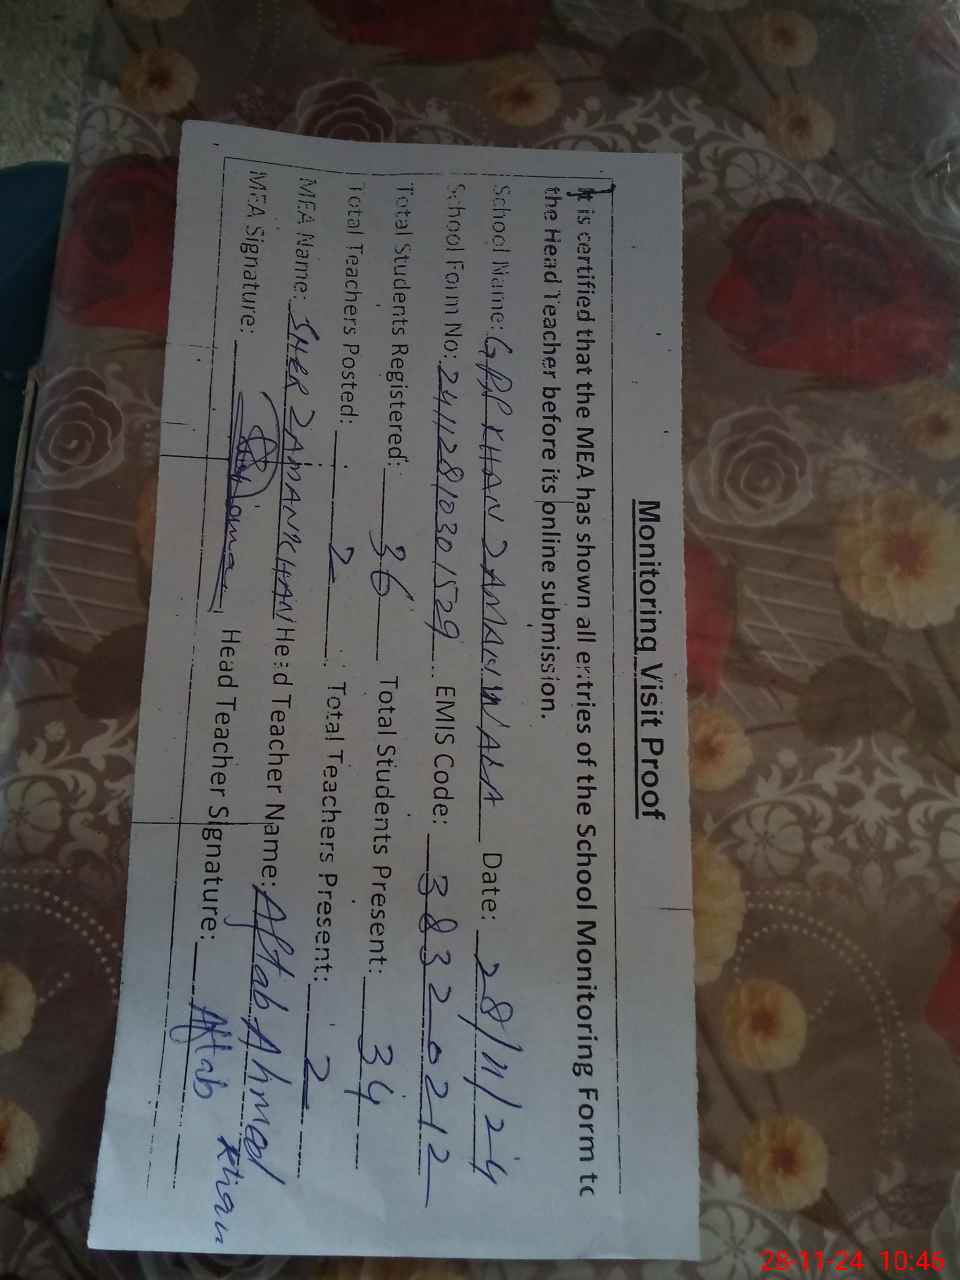 Monitoring Visit Proof
It is certified that the MEA has shown all entries of the School Monitoring Form to
the Head Teacher before its online submission.
School Name: GPP KHAN ZAMANIWALA Date: 28/11/24
School Form No: 24112810301529 EMIS Code: 38320212
Total Students Registered: 36 Total Students Present: 34
Total Teachers Posted: 2 Total Teachers Present: 2
MEA Name: SHER ZAMAN KHAN Head Teacher Name: Aftab Ahmed Khan
MEA Signature: Head Teacher Signature: Aftab
28-11-24 10:46